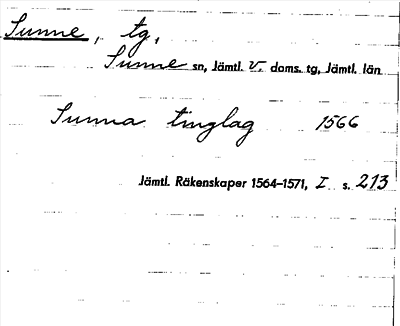 Sunne, tg,
Sunne sn, Jämtl. v. doms. tg, Jämtl. län
Sunna tinglag 1566
Jämtl. Räkenskaper 1564–1571, I s. 213